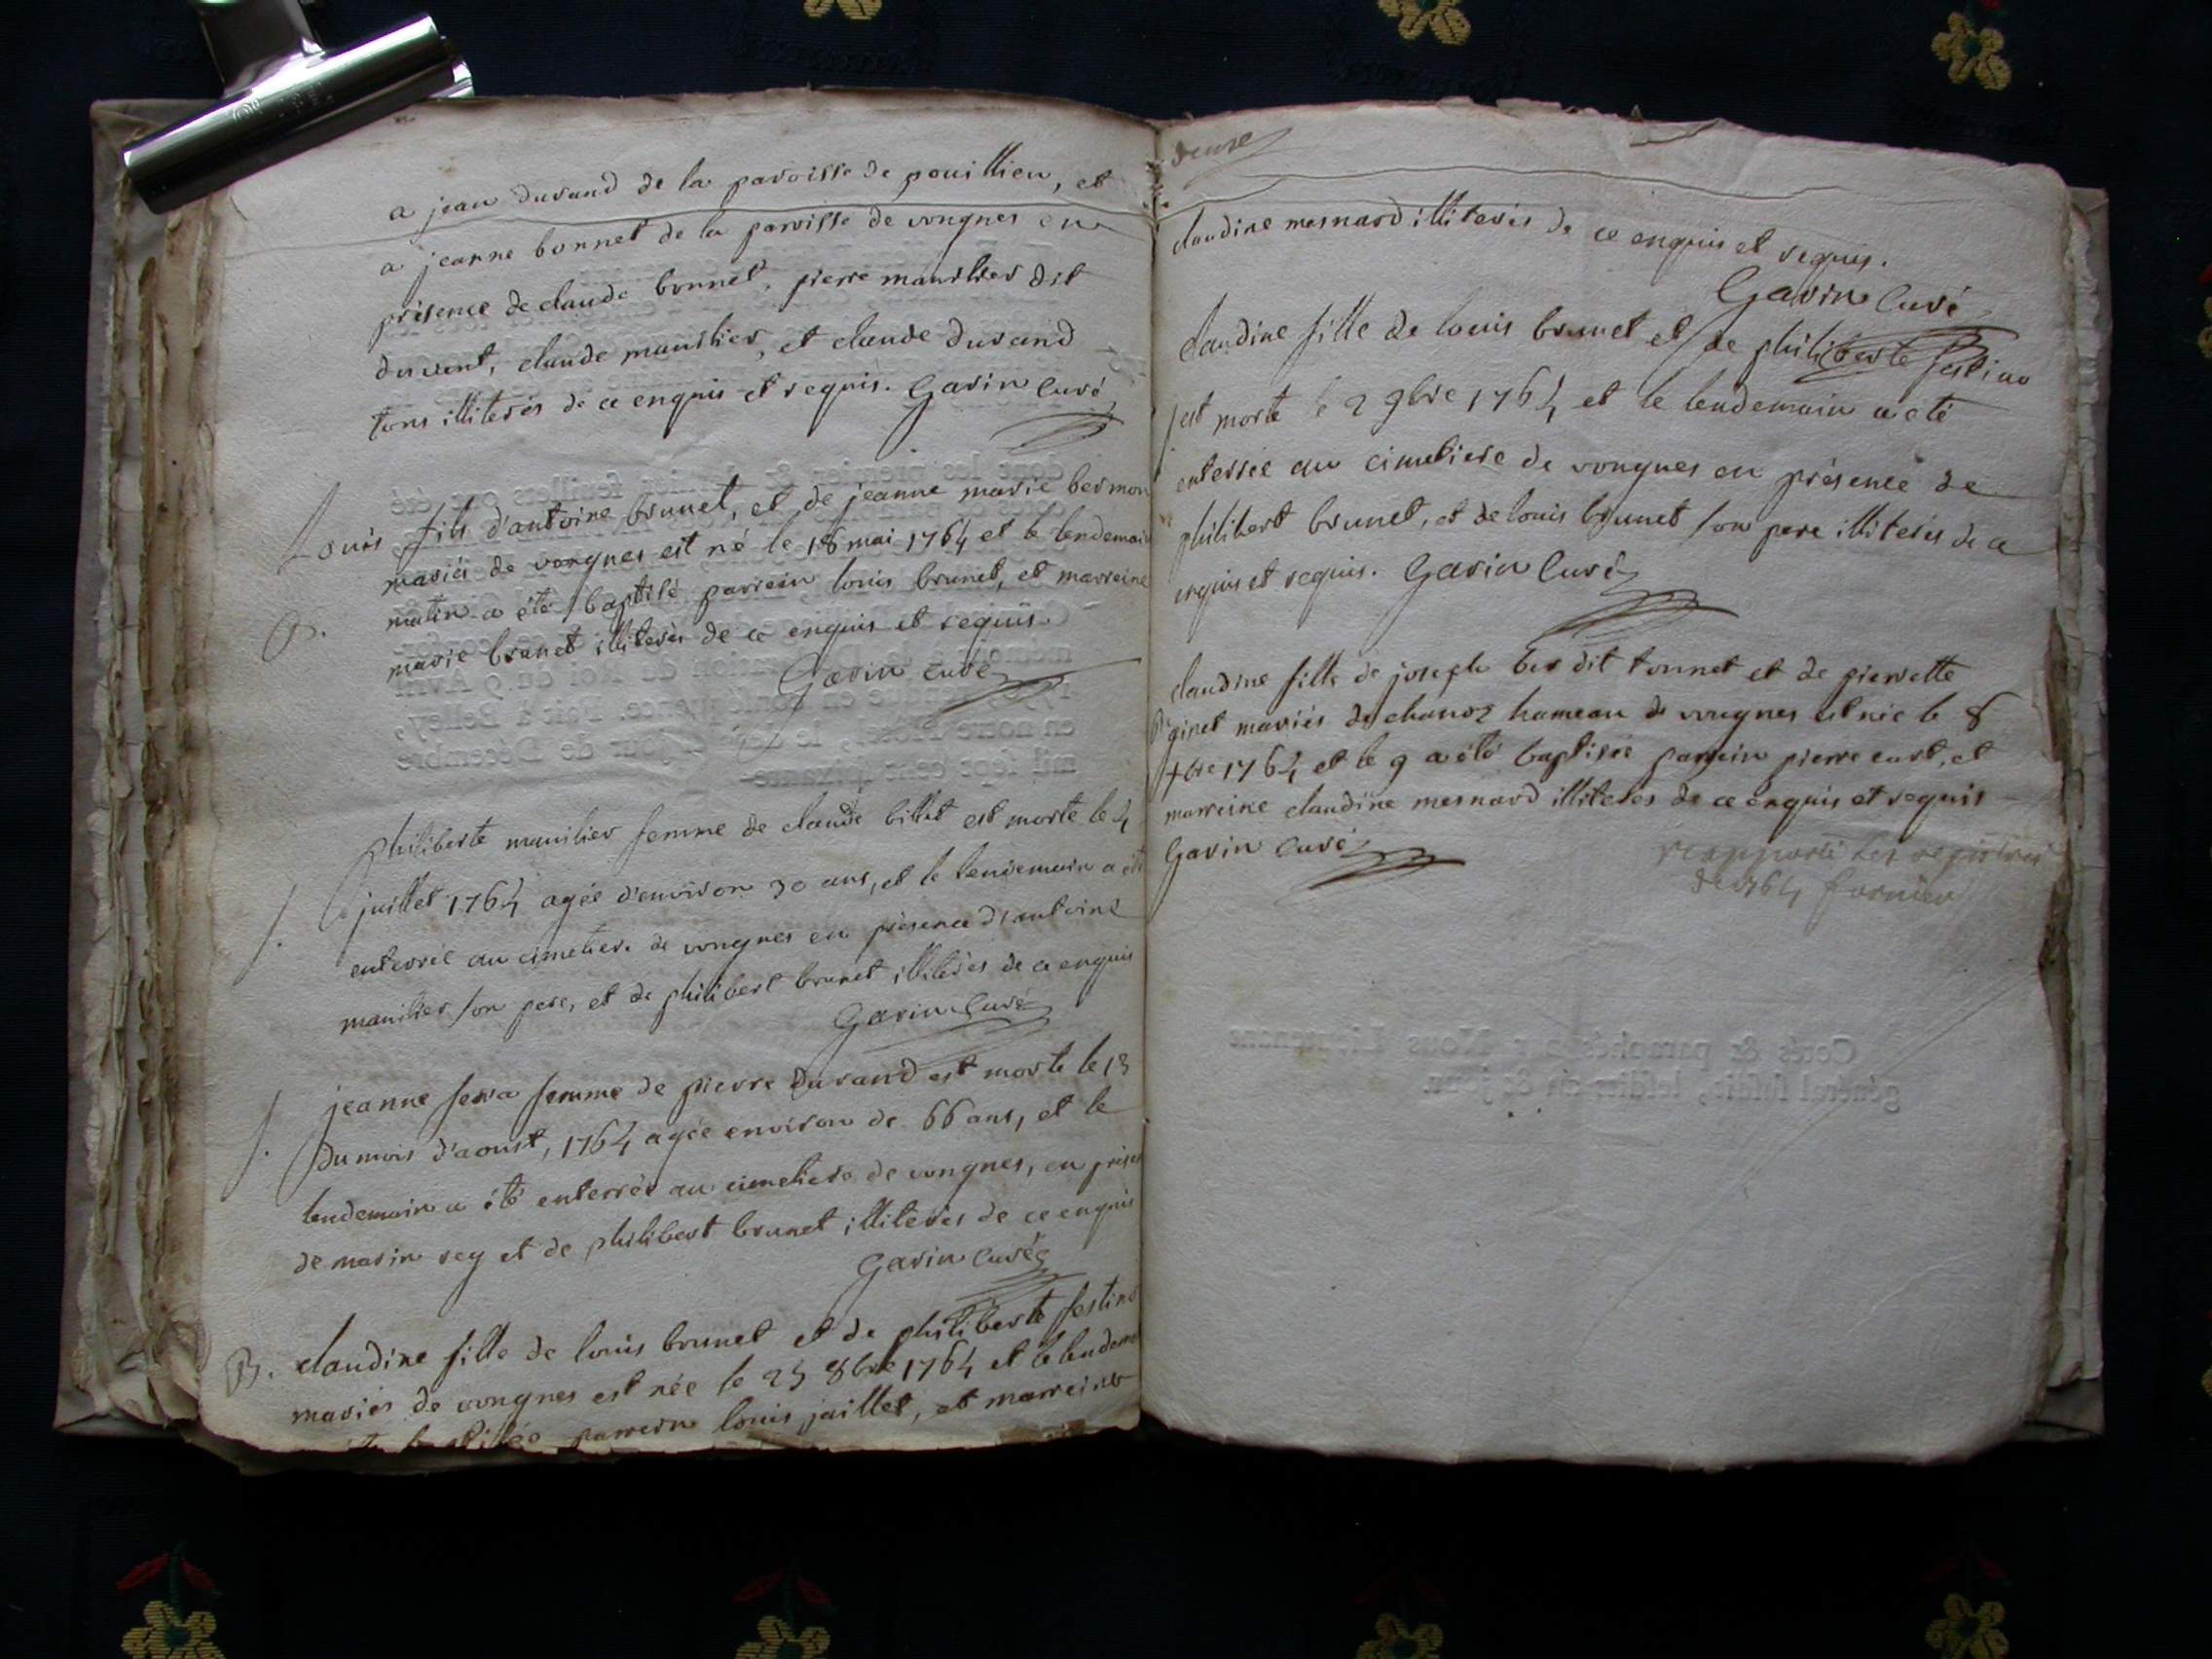 a jean durand de la paroisse de pouillieu, et
a jeanne bonnet de la paroisse de vongnes en
présence de claude bonnet, pierre manilier dit
durent, claude manilier, et claude durand
tous illiterés de ce enquis et requis. Gavin Curé
Louis fils d'antoine brunet, et de jeanne marie bermon
mariés de vongnes est né le 18 mai 1764 et le lendemain
matin a été baptisé parrein louis brunet, et marreine
B.
marie brunet illiterés de ce enquis et requis
Gavin Curé
philiberte manilier femme de claude billet est morte le 4
juillet 1764 agée d'environ 30 ans, et le lendemain a été
S.
enterrée au cimetiere de vongnes en présence d'antoine
manilier son pere, et de philibert brunet illiterés de ce enquis
Gavin Curé
jeanne serra femme de pierre durand est morte le 13
S.
du mois d'aoust, 1764 agée environ de 66 ans, et le
lendemain a été enterrée au cimetiere de vongnes, en prése
de marin rey et de philibert brunet illiterés de ce enquis
Gavin Curé
B. claudine fille de louis brunet et de philiberte festino
mariés de vongnes est née le 23 8bre 1764 et le lendem
parrein louis jaillet, et marreine
deuse
claudine mesnard illiterés de ce enquis et requis.
Gavin Curé
claudine fille de louis brunet et de philiberte festino
est morte le 2 9bre 1764 et le lendemain a été
S.
enterrée au cimetiere de vongnes en présence de
philibert brunet, et de louis brunet son pere illiterés de ce
enquis et requis. Gavin Curé
claudine fille de joseph ber dit tonnet et de pierrette
B. ginet mariés de chanoz hameau de vongnes est née le 8
xbre 1764 et le 9 a été baptisée parrein pierre curt, et
marreine claudine mesnard illiterés de ce enquis et requis
Gavin Curé
rapporté les registres
de 1764 fornier